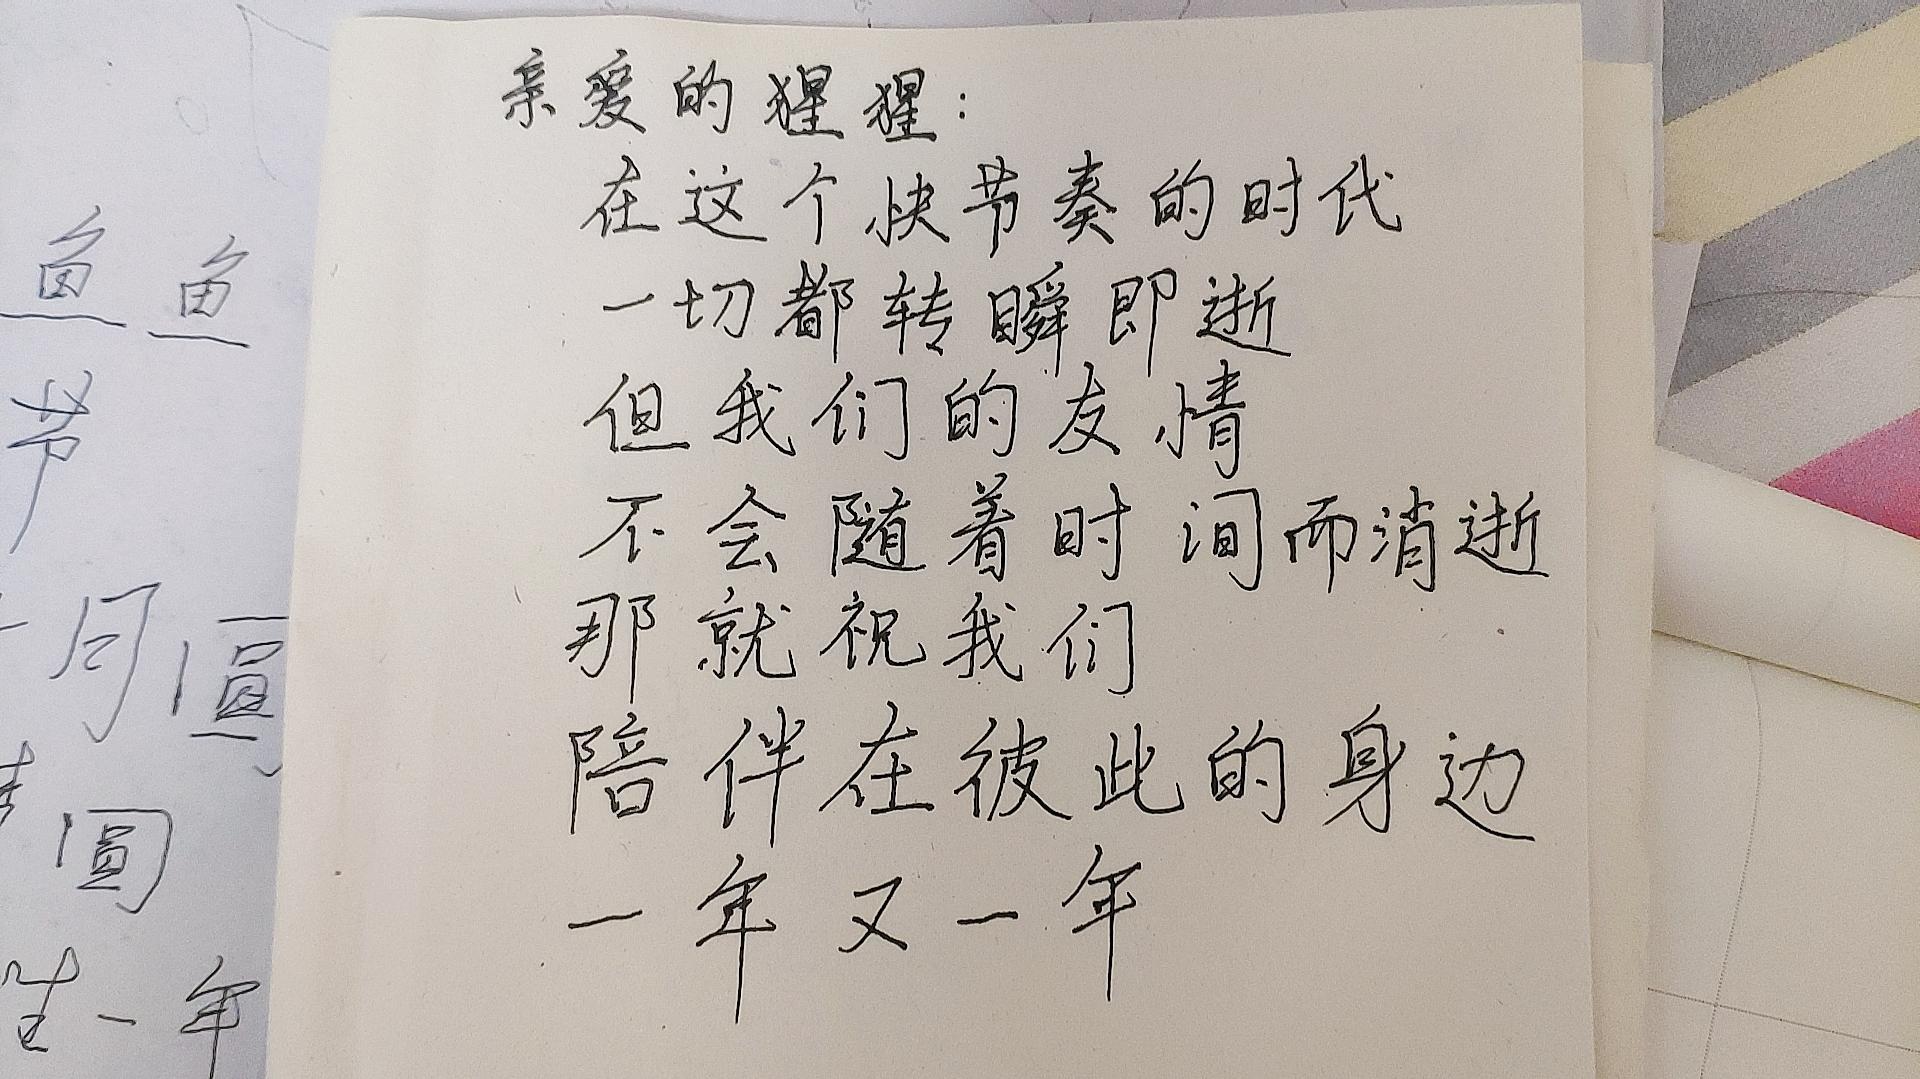 亲爱的猩猩：
在这个快节奏的时代
一切都转瞬即逝
但我们的友情
不会随着时间而消逝
那就祝我们
陪伴在彼此的身边
一年又一年
鱼鱼
节
月圆
圆
一年